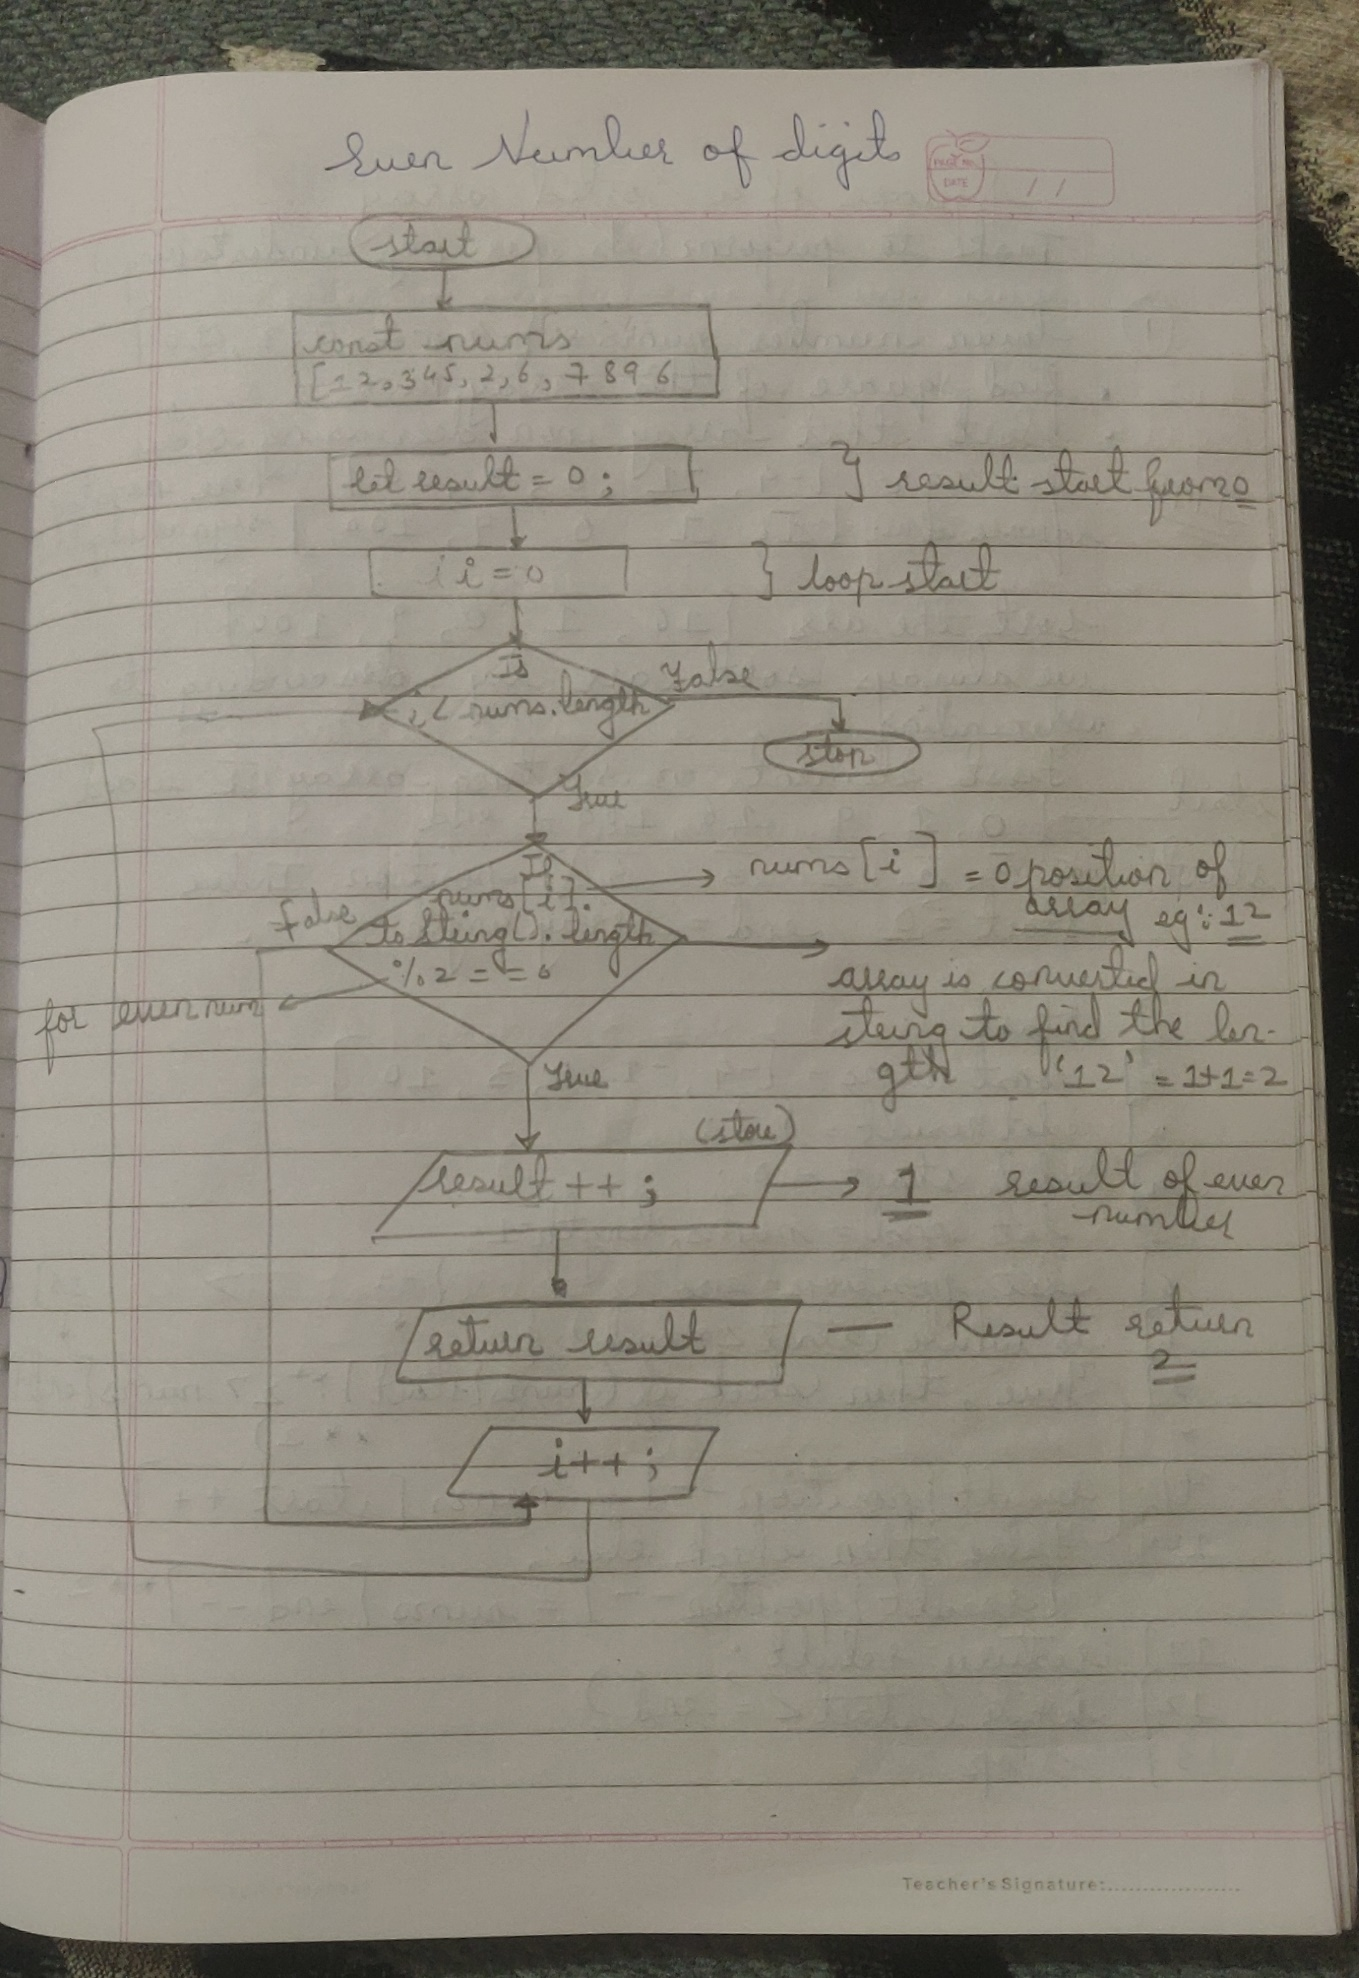 Even Number of digits
PAGE NO.
DATE / /
start
const nums
[12,345,2,6,7896
let result = 0; } result start from 0
i = 0 } loop start
Is
i < nums.length
False
stop
True
If
nums[i].
toString().length
%2 == 0
False
for even num
nums[i] = 0 position of
array eg: 12
array is converted in
string to find the len-
gth '12' = 1+1=2
True
(store)
result ++ ; → 1 result of even
number
return result — Result return
2
i++ ;
Teacher's Signature:....................